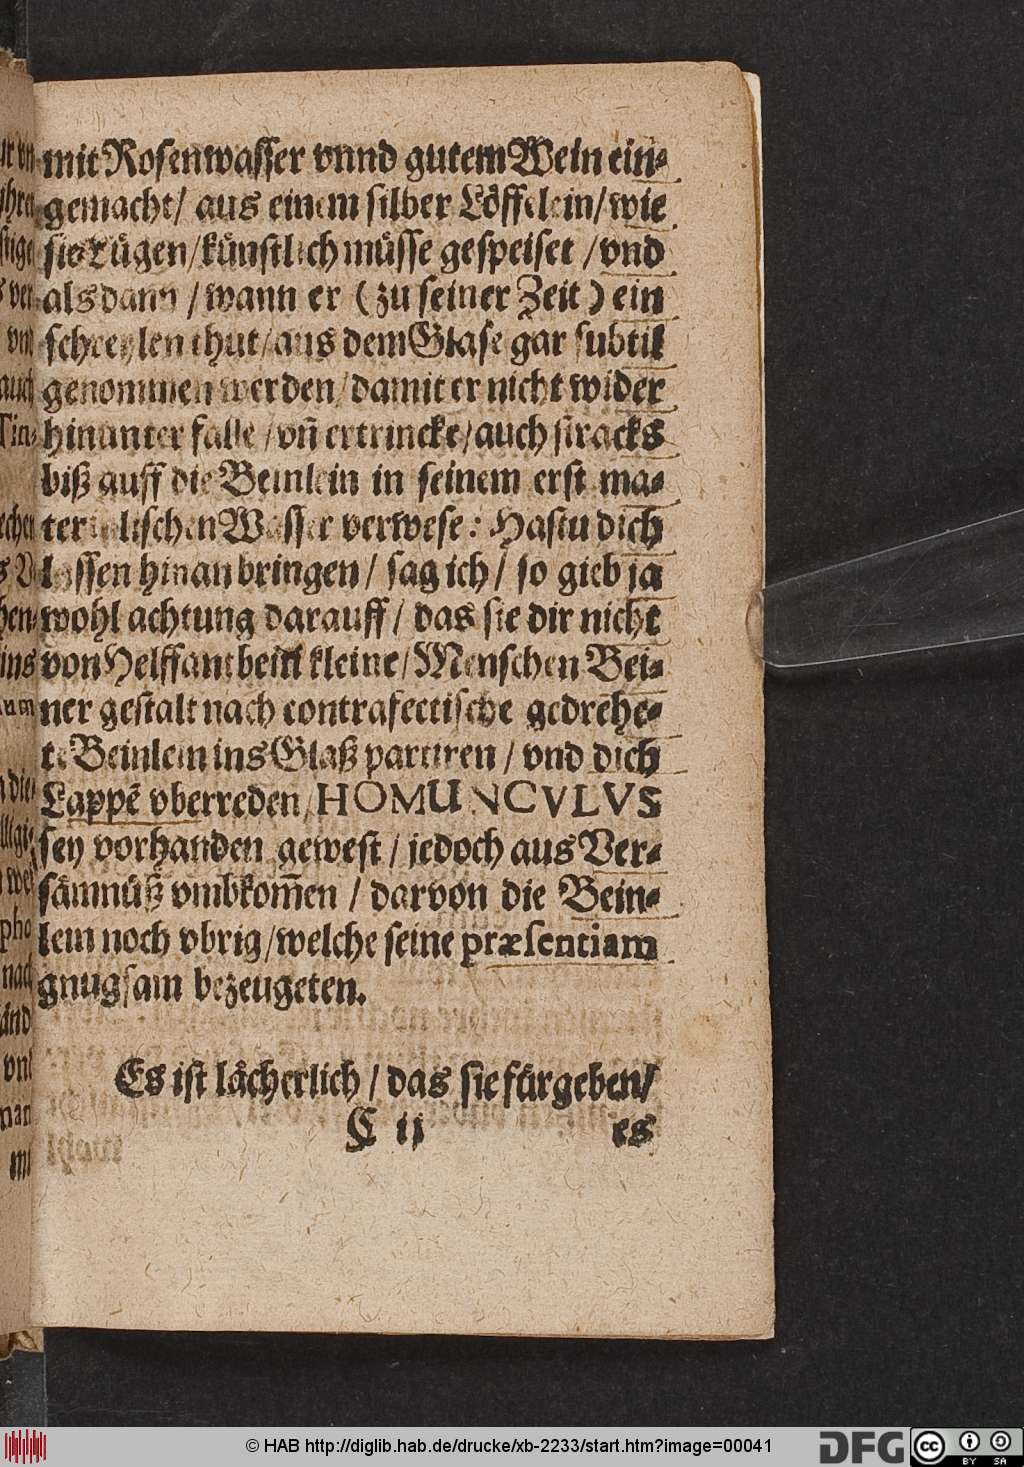 mit Rosenwasser vnnd gutem Wein ein-
gemacht/ aus einem silber Löffelein/ wie
sie Lügen/ künstlich müsse gespeiset / vnd
als dann / wann er ( zu seiner Zeit ) ein
schreylen thut/ aus dem Glase gar subtil
genommen werden/ damit er nicht wider
hinunter falle / vn̄ ertrincke/ auch stracks
biß auff die Beinlein in seinem erst ma-
terialischen Wasser verwese: Hastu dich
lassen hinan bringen / sag ich / so gieb ja
wohl achtung darauff / das sie dir nicht
von Helffantbein kleine/ Menschen Bei-
ner gestalt nach contrafectische gedrehe-
te Beinlein ins Glaß partiren / vnd dich
Lappē vberreden/ HOMUNCVLVS
sey vorhanden gewest / jedoch aus Ver-
sämnüß vmbkom̄en / darvon die Bein-
lein noch vbrig/ welche seine præsentiam
gnugsam bezeugeten.
Es ist lächerlich / das sie fürgeben/
C ij es
© HAB http://diglib.hab.de/drucke/xb-2233/start.htm?image=00041
DFG cc BY SA